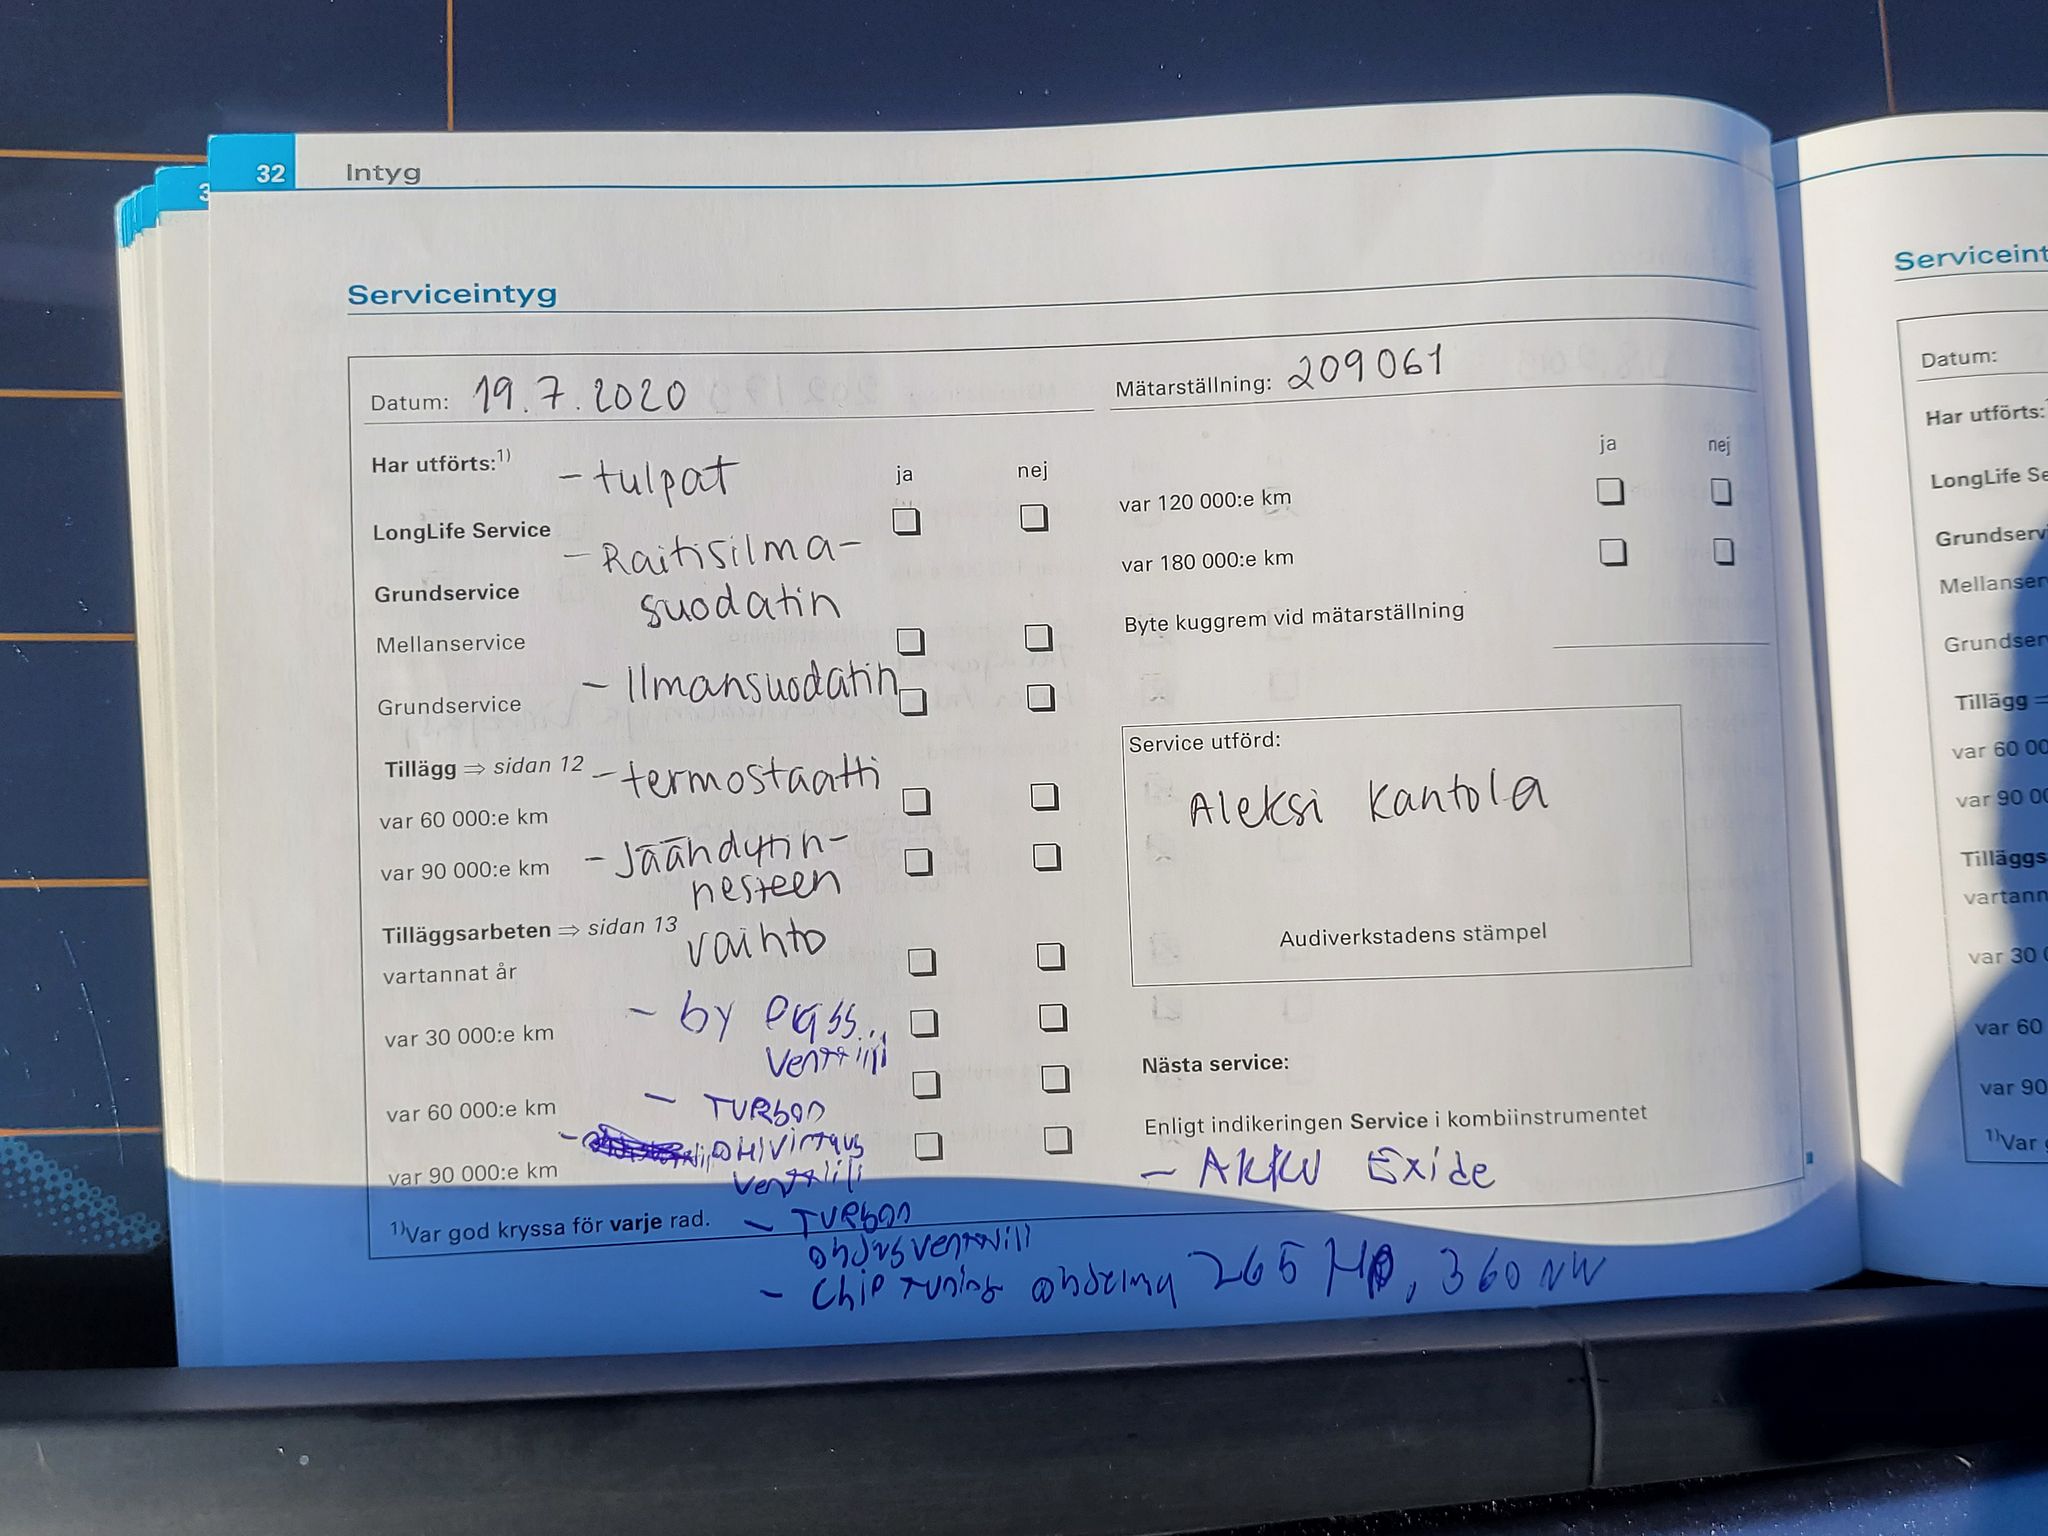 32 Intyg
3
Serviceintyg
Datum: 19.7.2020 Mätarställning: 209061
Har utförts:1) ja nej
- tulpat
LongLife Service
- Raitisilma-
Grundservice
suodatin
Mellanservice
- Ilmansuodatin
Grundservice
Tillägg ⇒ sidan 12
- termostaatti
var 60 000:e km
- Jäähdytin-
var 90 000:e km
nesteen
Tilläggsarbeten ⇒ sidan 13
vaihto
vartannat år
- by pass
var 30 000:e km
venttiili
- TURBON
var 60 000:e km
- OHIVIRTAUS
var 90 000:e km
venttiili
1)Var god kryssa för varje rad.
- TURBON
ohjusventtiili
- Chip Tuning 265 HP, 360 NM
ja nej
var 120 000:e km
var 180 000:e km
Byte kuggrem vid mätarställning
Service utförd:
Aleksi Kantola
Audiverkstadens stämpel
Nästa service:
Enligt indikeringen Service i kombiinstrumentet
- AKKU Exide
Serviceint
Datum:
Har utförts:
LongLife Se
Grundserv
Mellanser
Grundser
Tillägg
var 60 00
var 90 00
Tilläggs
vartann
var 30 0
var 60
var 90
1)Var g